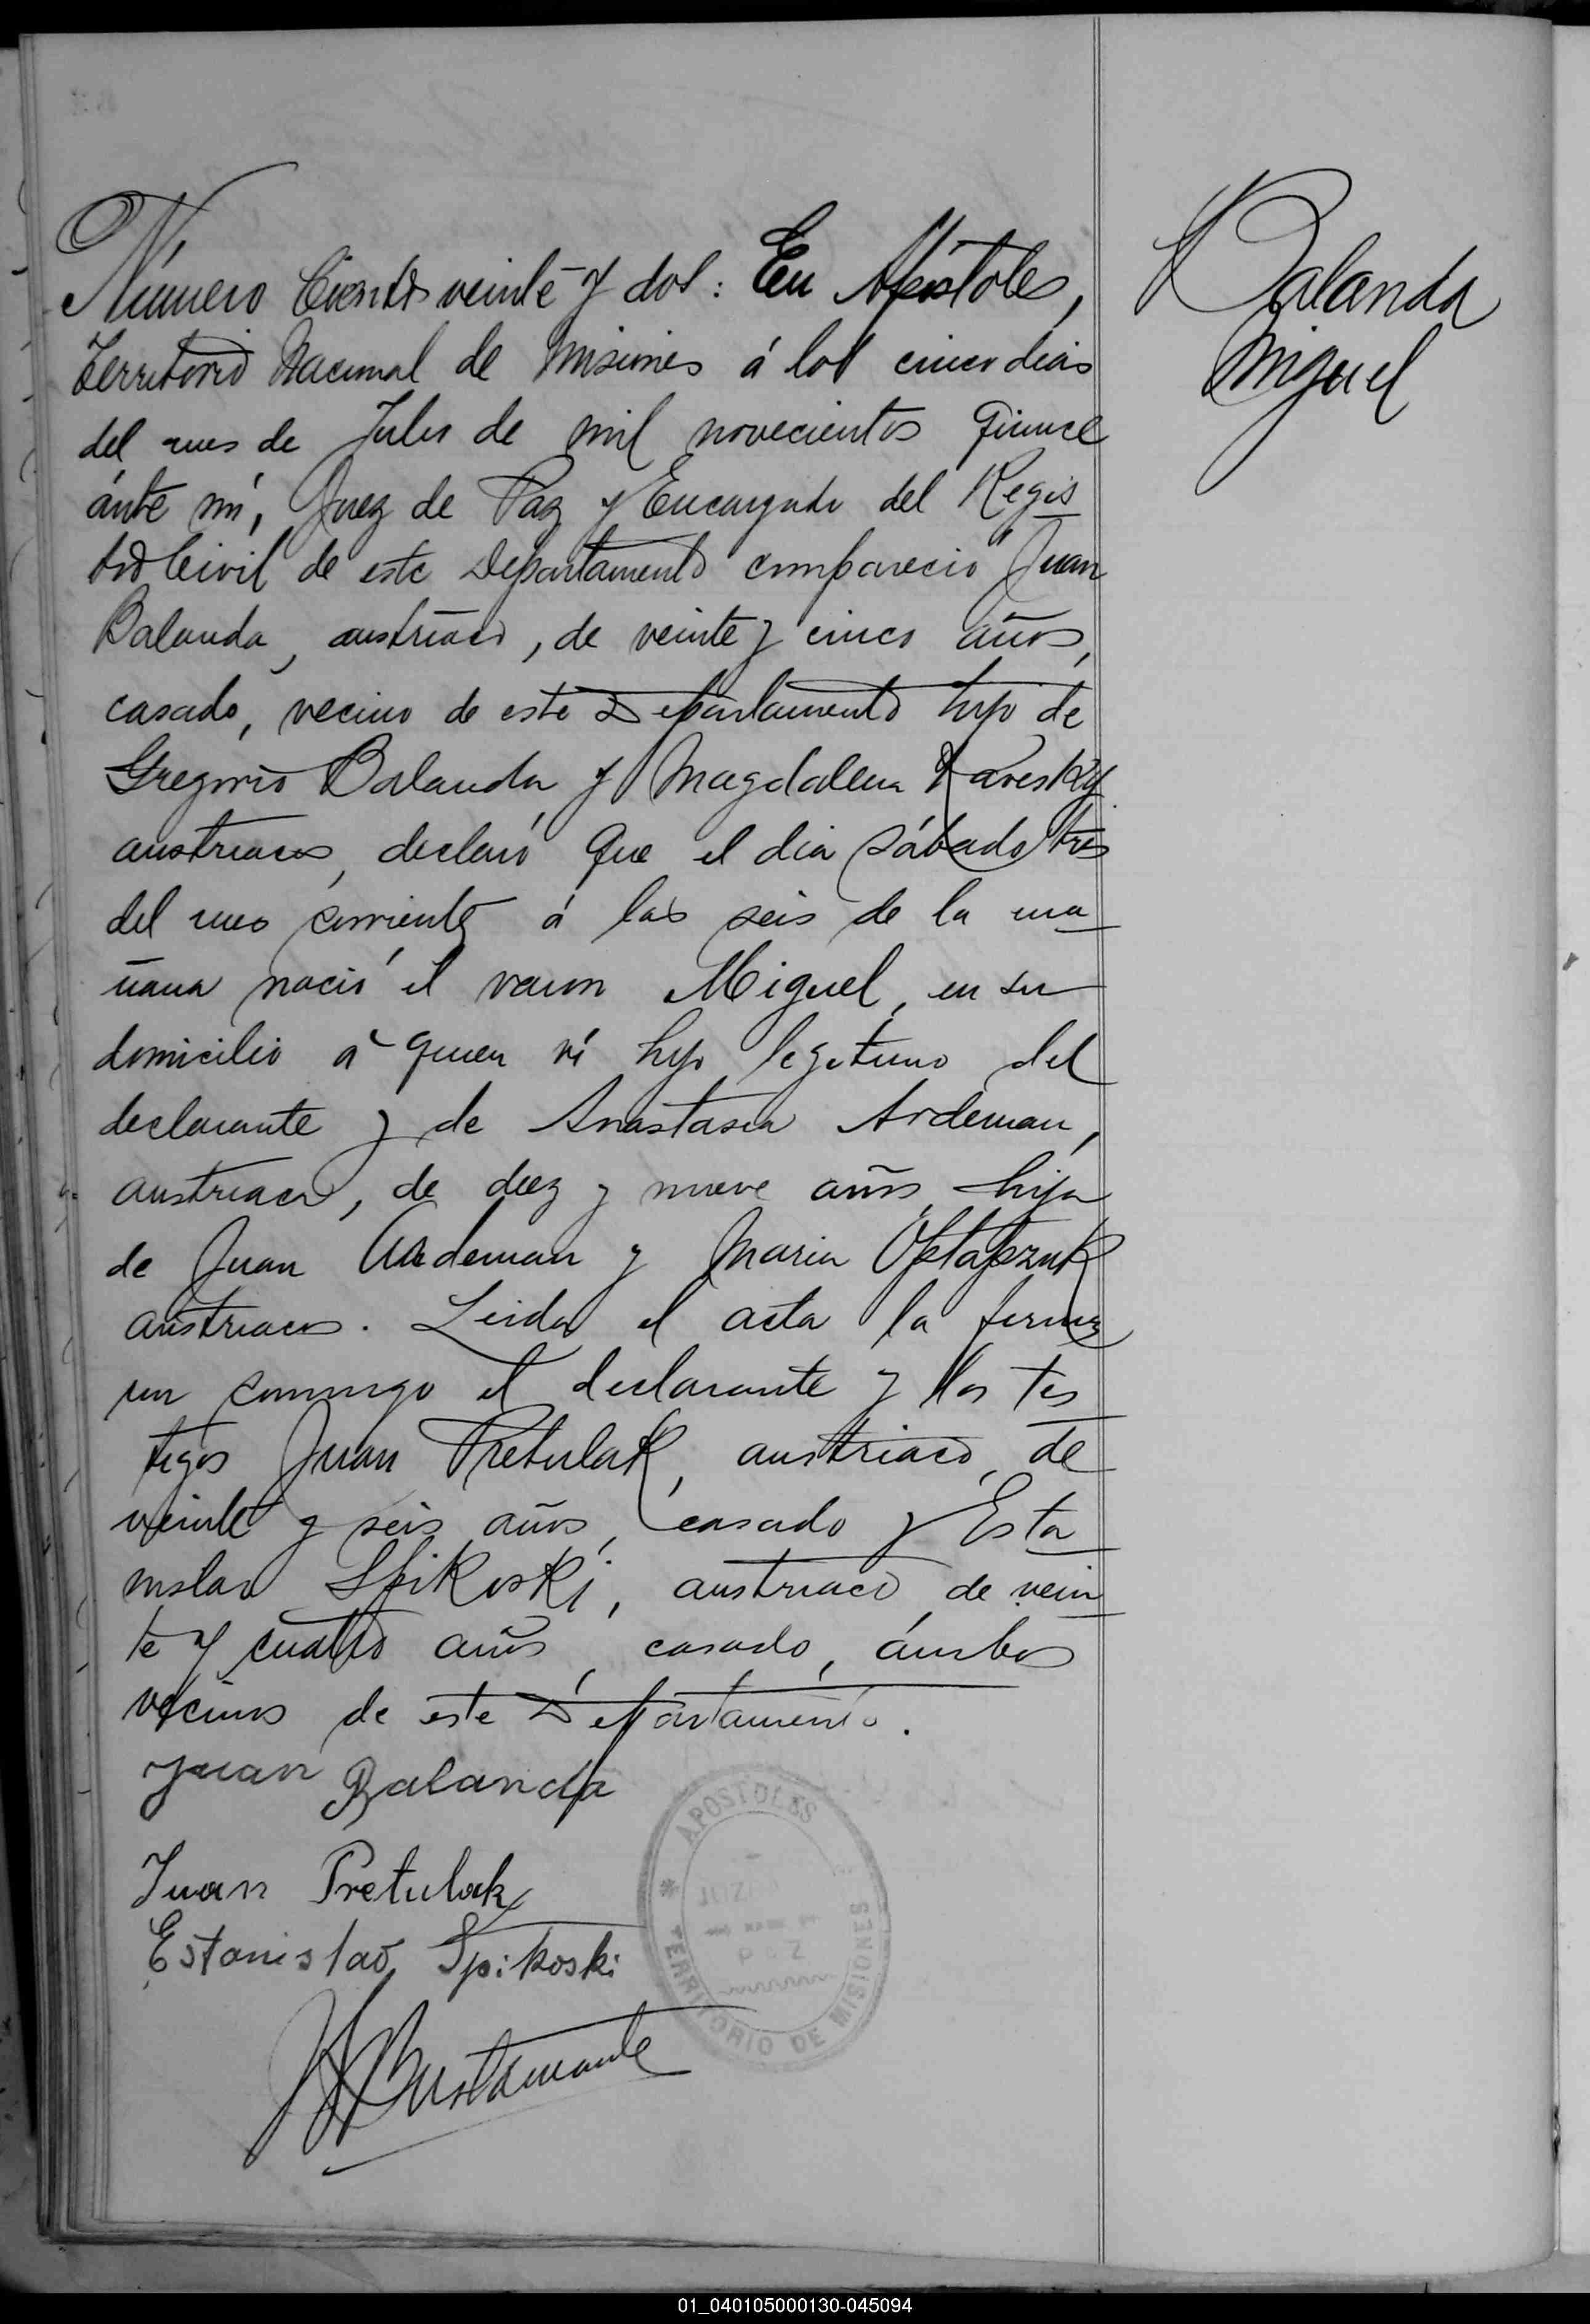 Número Ciento veinte y dos: En Apóstoles,
Territorio Nacional de Misiones á los cinco dias
del mes de Julio de mil novecientos quince
ánte mí, Juez de Paz y Encargado del Regis
tro Civil de este Departamento compareció Juan
Balanda, austríaco, de veinte y cinco años,
casado, vecino de este Departamento hijo de
Gregorio Balanda y Magdalena
austriacos, declaró que el dia sábado tres
del mes corriente á las seis de la ma
ñana nació el varon Miguel, en su
domicilio á quien ví hijo legitimo del
declarante y de Anastasia Ardeman,
austriaca, de diez y nueve años, hija
de Juan Ardeman y Maria
austriacos. Leida el acta la firma
ron conmigo el declarante y los tes
tigos Juan Pretulak, austriaco, de
veinte y seis años, casado y Esta
nislao Spikoski, austriaco, de vein
te y cuatro años, casado, ámbos
vecinos de este Departamento.
Juan Balanda
Juan Pretulak
Estanislao Spikoski
Bustamante
Balanda
Miguel
APOSTOLES
JUZ
PAZ
TERRITORIO DE MISIONES
01_040105000130-045094